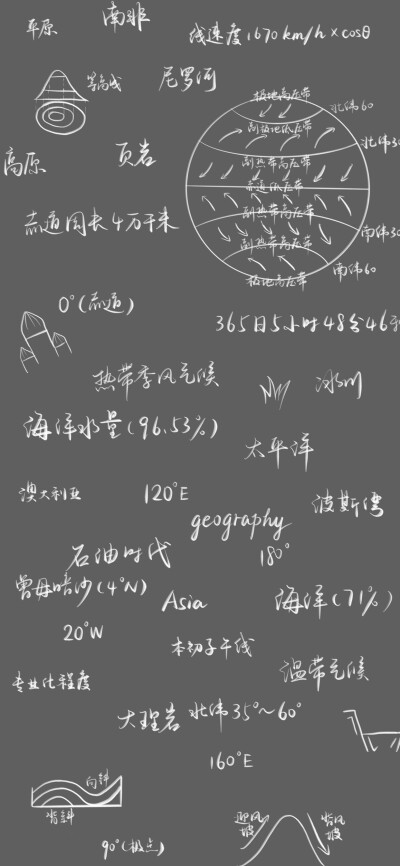 平原
南非
线速度1670km/h×cosθ
等高线
尼罗河
极地高压带
北纬60
副极地低压带
北纬30
高原
页岩
副热带高压带
赤道低压带
副热带高压带
赤道周长4万千米
南纬30
副热带高压带
南纬60
极地高压带
0°(赤道)
365日5小时48分46秒
热带季风气候
冰川
海洋水量(96.53%)
太平洋
澳大利亚
120°E
波斯湾
geography
石油时代
180°
曾母暗沙(4°N)
Asia
海洋(71%)
20°W
本初子午线
温带气候
专业化程度
大理岩
北纬35°~60°
160°E
向斜
背斜
迎风坡
背风坡
90°(极点)